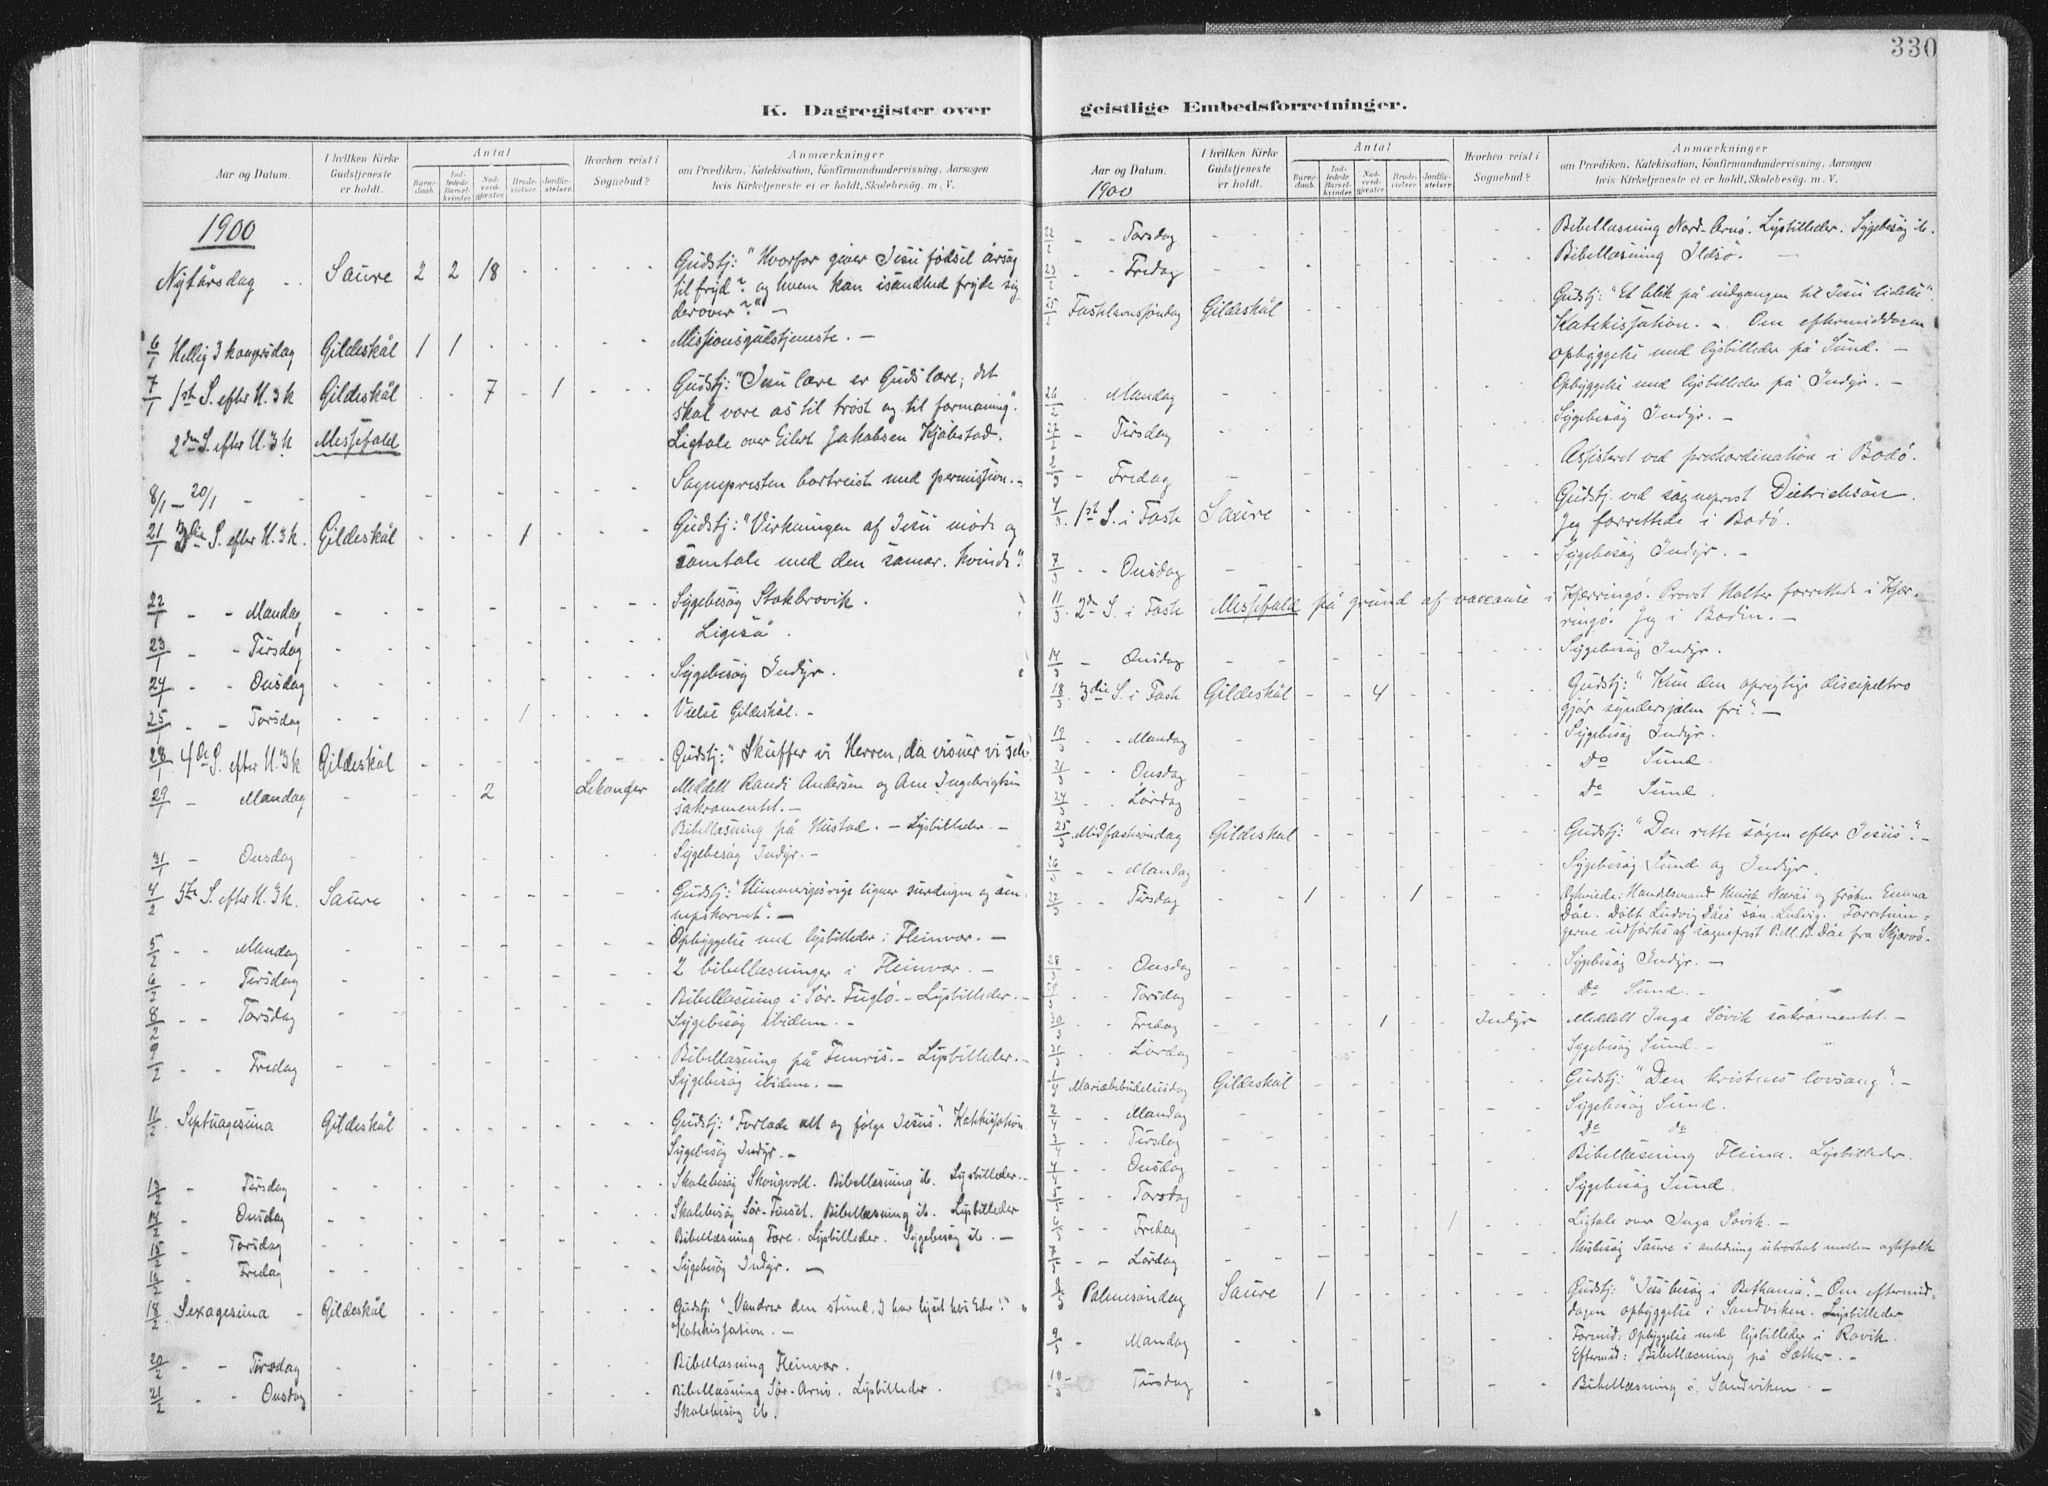 330
K. Dagregister over
Aar og Datum.
I hvilken Kirke Gudstjeneste er holdt.
Antal
Barnedaab.
Indledede Barselkvinder.
Nadverdgjæster.
Brudevielser.
Jordfæstelser.
Hvorhen reist i Sognebud?
Anmærkninger
om Prædiken, Katekisation, Konfirmandundervisning, Aarsagen
hvis Kirketjeneste ei er holdt, Skolebesög. m. V.
1900
Nytårsdag Saure 2 2 18 Gudstj: "Hvorfor giver Jesu fødsel årsag
til fryd? og hvem kan isandhed fryde sig
derover?" –
6/1 Hellig 3 kongersdag Gildeskål 1 1 Missionsgudstjeneste. –
7/1 1ste S. efter H. 3 k Gildeskål 7 1 Gudstj: "Jesu lære er Guds lære; det
skal være os til trøst og til formaning".
2den S. efter H. 3 k Messefald Ligtale over Eilert Jakobsen Kjelstad.
8/1 – 20/1 Sognepresten bortreist med permission. –
21/1 3die S. efter H. 3 k. Gildeskål 1 Gudstj: "Virkningen af Jesu møde og
samtale med den samar. kvinde".
22/1 Mandag Sygebesøg Stokbrovik.
23/1 Tirsdag Ligeså.
24/1 Onsdag Sygebesøg Indyr.
25/1 Torsdag 1 Vielse Gildeskål. –
28/1 4de S. efter H. 3 k Gildeskål Gudstj: "Skuffer vi Herren, da visner vi selv.
29/1 Mandag 2 Lekanger Meddelt Randi Andersen og Ane Ingebrigtsen
sakramentet. –
Bibellæsning på Hustad. – Lysbilleder. –
31/1 Onsdag Sygebesøg Indyr. –
4/2 5te S. efter H. 3 k. Saure Gudstj: "Himmeriges rige ligner surdeigen og sen-
nepskornet". –
5/2 Mandag Opbyggelse med lysbilleder i Fleinvær. –
6/2 Tirsdag 2 bibellæsninger i Fleinvær. –
8/2 Torsdag Bibellæsning i Sör-Fuglö. – Lysbilleder. –
Sygebesøg ibidem. –
9/2 Fredag Bibellæsning på Femris. – Lysbilleder. –
Sygebesøg ibidem. –
11/2 Septuagesima Gildeskål Gudstj: "Forlade alt og følge Jesus". Katekisation.
Sygebesøg Indyr. –
13/2 Tirsdag Skolebesøg Skougvold. Bibellæsning ib. Lysbilleder. –
14/2 Onsdag Skolebesøg Sör-Finset. Bibellæsning ib. Lysbilleder
15/2 Torsdag Bibellæsning Fore. Lysbilleder. Sygebesøg ib. –
16/2 Fredag Sygebesøg Indyr. –
18/2 Sexagesima Gildeskål Gudstj: "Vandrer den stund, I har lyset hos Eder!"
Katekisation. –
20/2 Tirsdag Bibellæsning Fleinvær.
21/2 Onsdag Bibellæsning Sör-Arnö. Lysbilleder.
Skolebesøg ib.
geistlige Embedsforretninger.
Aar og Datum.
I hvilken Kirke Gudstjeneste er holdt.
Antal
Barnedaab.
Indledede Barselkvinder.
Nadverdgjæster.
Brudevielser.
Jordfæstelser.
Hvorhen reist i Sognebud?
Anmærkninger
om Prædiken, Katekisation, Konfirmandundervisning, Aarsagen
hvis Kirketjeneste ei er holdt, Skolebesög. m. V.
1900
22/2 Torsdag Bibellæsning Nord-Arnö. Lysbilleder. Sygebesøg ib.
23/2 Fredag Bibellæsning Ildsö. –
25/2 Fastelavnssöndag Gildeskål Gudstj: "Et blik på indgangen til Jesu lidelse".
Katekisation. – Om eftermiddagen
opbyggelse med lysbilleder på Sund. –
26/2 Mandag Opbyggelse med lysbilleder på Indyr. –
27/2 Tirsdag Sygebesøg Indyr. –
2/3 Fredag Assisteret ved presteordination i Bodö.
4/3 1ste S. i Faste Saure Gudstj. ved sogneprest Dietrichson.
Jeg forrettede i Bodö.
7/3 Onsdag Sygebesøg Indyr. –
11/3 2den S. i Faste Messefald på grund af vaccanse i Kjærringö. Provst Holter forrettede i Kjær-
ringö. Jeg i Bodin. –
14/3 Onsdag Sygebesøg Indyr.
18/3 3die S. i Faste Gildeskål 4 Gudstj: "Kun den oprigtige discipeltro
gjör syndersjælen fri". –
19/3 Mandag Sygebesøg Indyr.
21/3 Onsdag Do Sund.
24/3 Lördag Do Sund.
25/3 Midfastesöndag Gildeskål Gudstj: "Den rette søgen efter Jesus". –
26/3 Mandag Sygebesøg Sund og Indyr.
27/3 Tirsdag 1 1 Egteviede: Handelsmand Henrik and fröken Emma
Dåe. Döbt Ludvig Dåes sön Ludvig. Forretnin-
gerne udførtes af sogneprest P. M. B. Dåe fra Skjærvö.
28/3 Onsdag Sygebesøg Indyr. –
29/3 Torsdag Do Sund. –
30/3 Fredag 1 Indyr Meddelt Inga Sövik sakramentet. –
31/3 Lördag Sygebesøg Sund. –
1/4 Mariæbebudelsesdag Gildeskål Gudstj: "Den kristnes lovsang". –
2/4 Mandag Sygebesøg Sund.
3/4 Tirsdag Do do
4/4 Onsdag Bibellæsning Fleina. Lysbilleder.
5/4 Torsdag Sygebesøg Sund.
6/4 Fredag 1 Ligtale over Inga Sövik. –
7/4 Lördag Husbesøg Saure i anledning utroskab mellem egtefolk
8/4 Palmesöndag Saure 1 Gudstj: "Jesu besøg i Bethania". – Om eftermid-
dagen opbyggelse i Sandviken. Lysbilleder
9/4 Mandag Formid: Opbyggelse med lysbilleder i Rovik.
Eftermid: Bibellæsning på Sæther. –
10/4 Tirsdag Bibellæsning i Sandviken. –